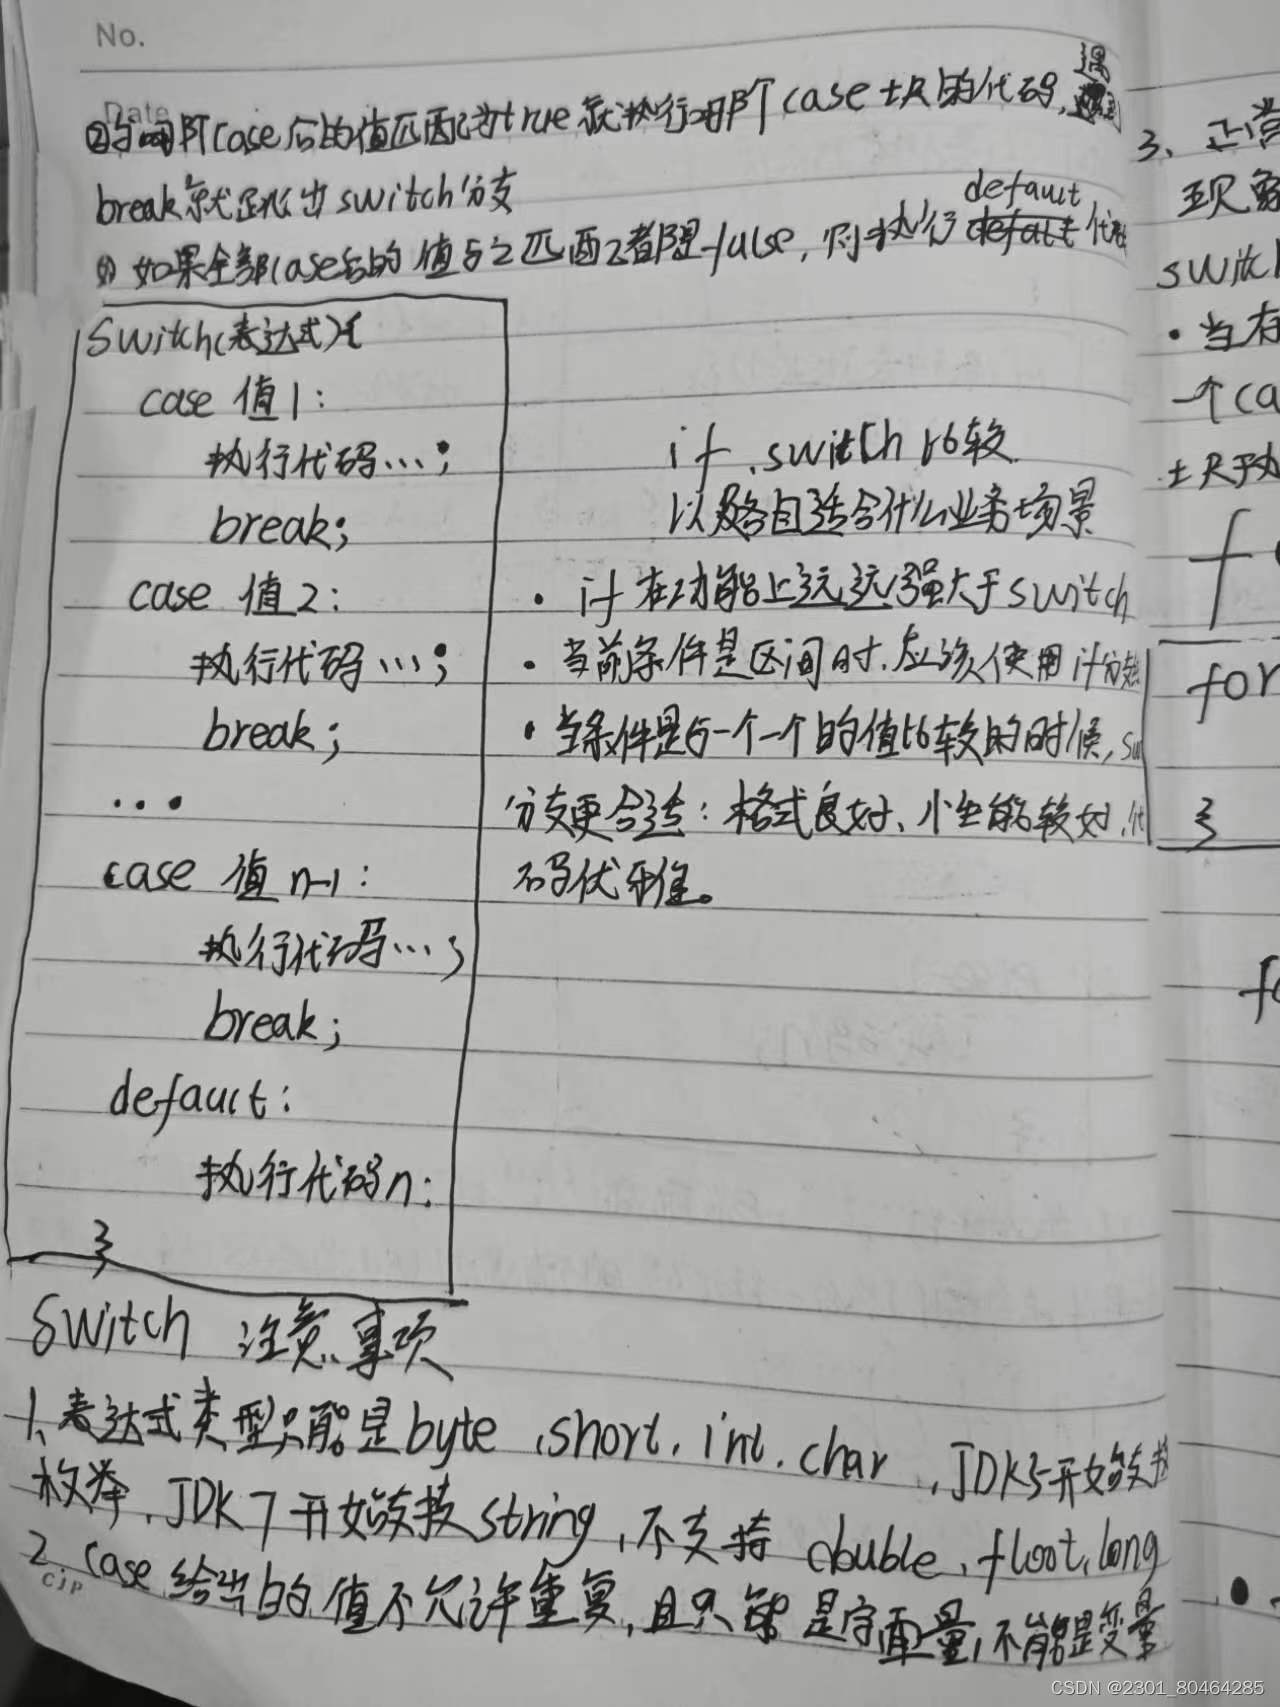 No.
Date
②与哪个case后的值匹配为true就执行哪个case块的代码,遇到
break就跳出switch分支
③如果全部case后的值与之匹配都是false,则执行default代码
switch(表达式){
case 值1:
执行代码...;
break;
case 值2:
执行代码...;
break;
...
case 值n-1:
执行代码...;
break;
default:
执行代码n;
}
if、switch比较
以及各自适合什么业务场景
· if在功能上远远强大于switch
· 当前条件是区间时,应该使用if分支
· 当条件是与一个一个的值比较的时候,sw
分支更合适:格式良好、性能较好、代
码优雅。
switch 注意事项
1、表达式类型只能是byte、short、int、char,JDK5开始支持
枚举,JDK7开始支持string,不支持double、float、long
2、case给出的值不允许重复,且只能是字面量,不能是变量
cjp
3、正常
现象
switch
· 当存
一个ca
for
}
CSDN @2301_80464285